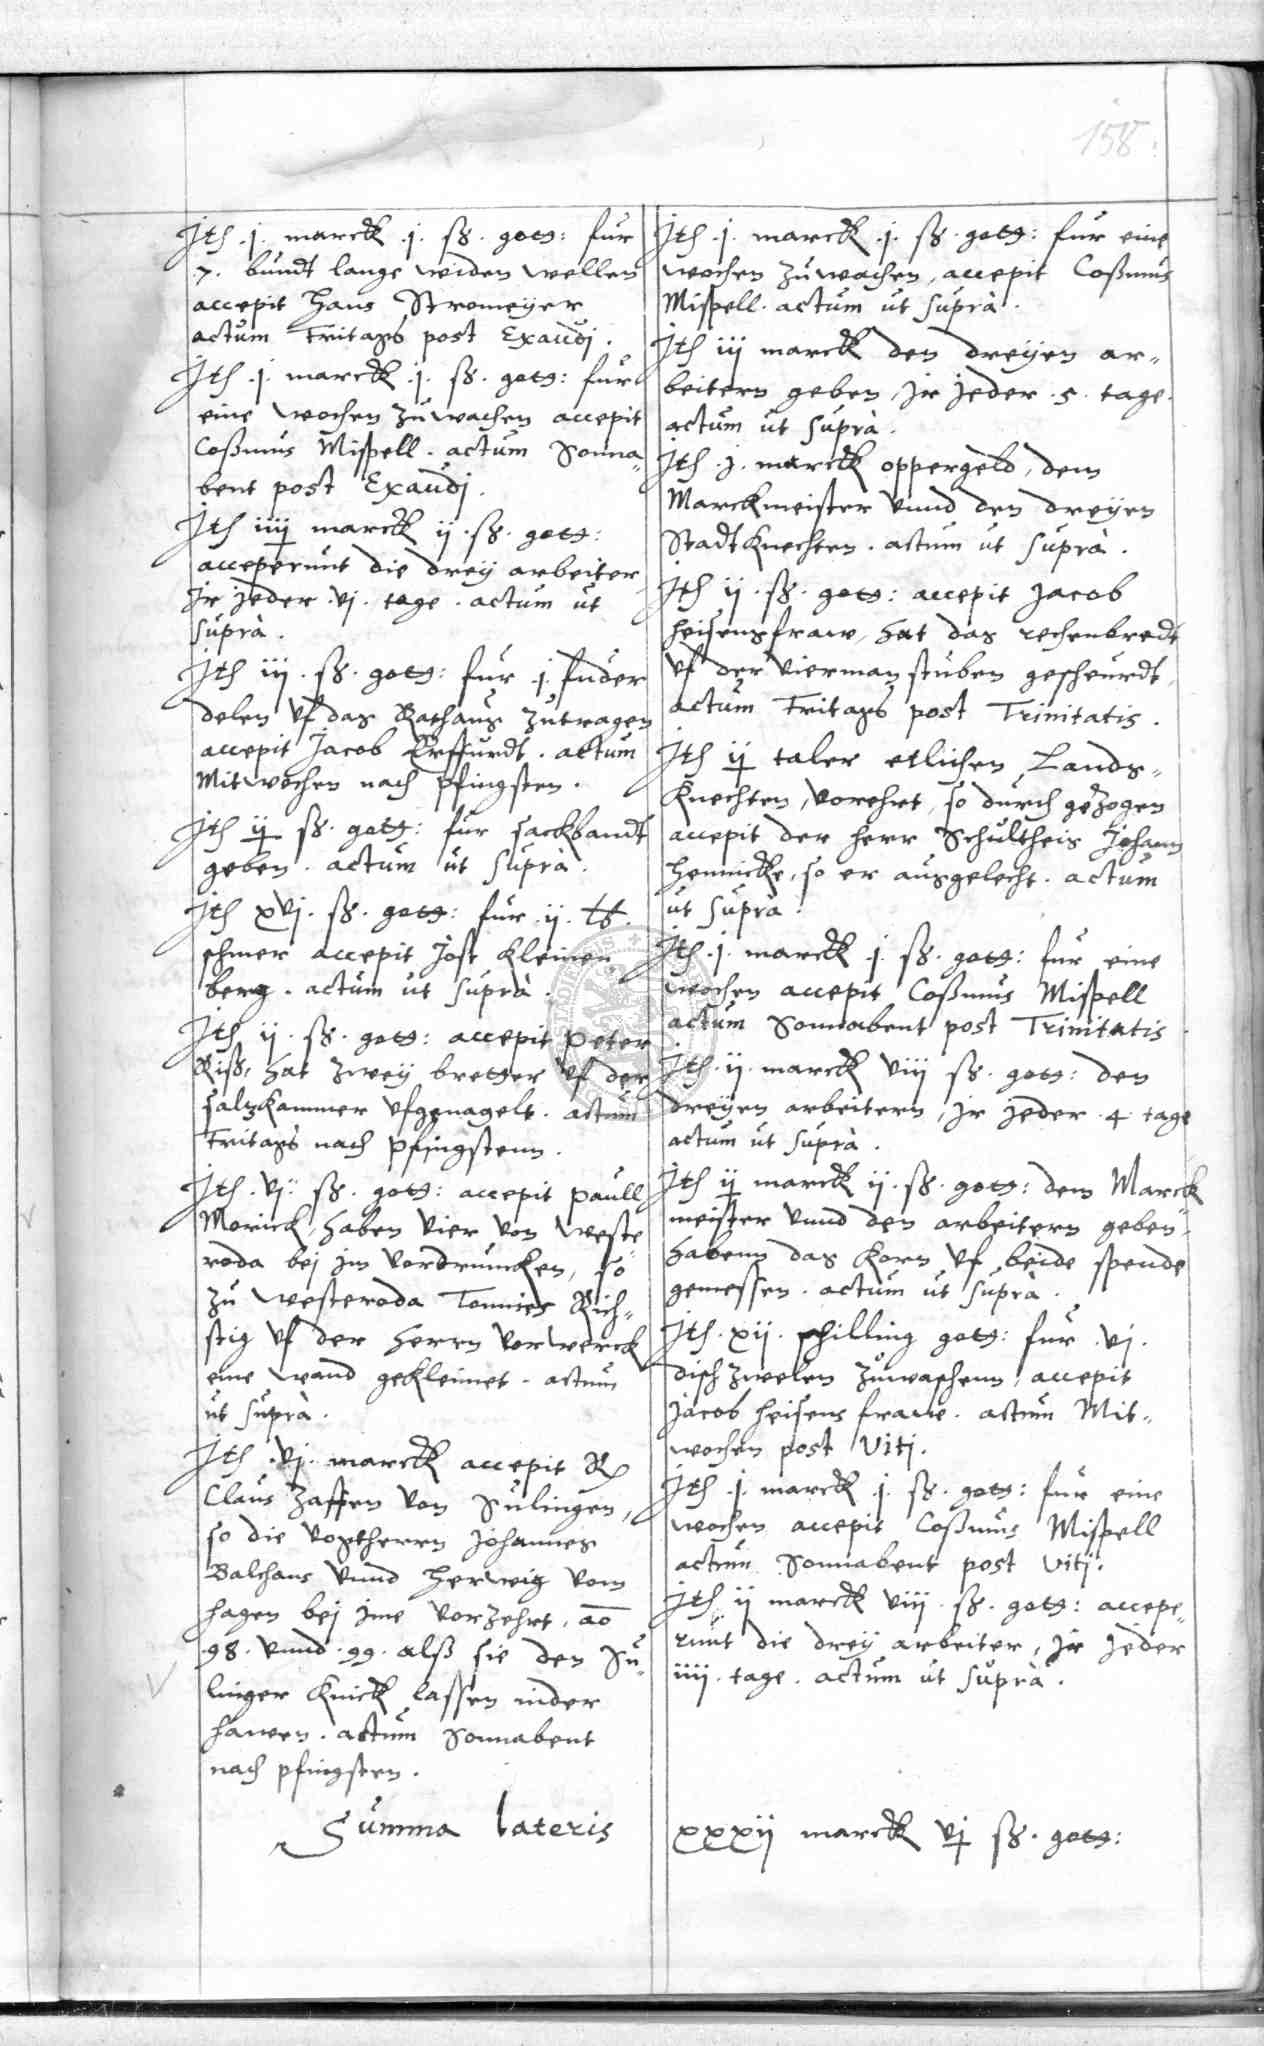 158.
Jtē .j. marck .j. ß. gotȝ: fur
7. bundt lange widen wellen
accepit Hans Stromeÿer
actum Fritags post Exaudj.
Jtē .j. marck .j. ß. gotȝ: fur
eine wochen zuwachen accepit
Coßmus Mispell. actum Sonna„
bent post Exaudj.
Jtē iiij marck ij. ß. gotȝ:
acceperunt die dreÿ arbeiter
Jr jeder .vj. tage. actum ut
suprà.
Jtē iij. ß. gotȝ: fur .j. fuder
delen uf das Rathaus zutragen
accepit Jacob Erffurdt. actum
Mitwochen nach pfingsten.
Jtē ij ß. gotȝ: fur sackbandt
geben. actum ut suprà.
Jtē xvj. ß. gotȝ: fur .ij. lb.
schmer accepit Jost Kleinen
berg. actum ut suprà.
Jtē ij. ß. gotȝ: accepit Peter
Riß, hat zweÿ bretger uf der
saltzkammer ufgenagelt. actum
Fritags nach Pfingstenn.
Jtē .vj. ß. gotȝ: accepit Paull
Morick, haben vier von Weste„
roda bej jm vordruncken, so
zu Westeroda Tonnies Rich„
stig uf der Herrn vorwerck
eine wand gekleimet. actum
ut suprà.
Jtē .vj. marck accepit
Claus Zaffen von Sulingen,
so die vogtherrn Johannes
Balchaus vnnd Herwig vom
Hagen bej jme vorzehrt, aō
98. vnnd .99. alß sie den Su„
linger Knick lassen nider
hawen. actum Sonnabent
nach pfingsten.
Summa lateris
Jtē .j. marck .j. ß. gotȝ: fur eine
wochen zuwachen, accepit Coßmus
Mispell. actum ut suprà.
Jtē iij marck den dreÿen ar„
beitern geben, Jr jeder .5. tage.
actum ut suprà.
Jtē .j. marck oppergeld, dem
Marckmeister vnnd den dreÿen
Stadtknechten. actum ut suprà.
Jtē ij. ß. gotȝ: accepit Jacob
Heisensfraw, hat das rechenbredt
uf der vierman stuben gescheurdt,
actum Fritags post Trinitatis.
Jtē ij taler etlichen Lands„
Knechten, vorehrt, so durch gezogen
accepit der Herr Schultheis Johann
Hennicke, so er ausgelecht. actum
ut suprà.
Jtē .j. marck .j. ß. gotȝ: fur eine
wochen accepit Coßmus Mispell
actum Sonnabent post Trinitatis
Jtē .ij. marck viij ß. gotȝ: den
dreÿen arbeitern, Jr jeder .4. tage
actum ut suprà.
Jtē ij marck ij. ß. gotȝ: dem Marck
meister vnnd den arbeitern geben„
habenn das Korn uf beide spende
gemessen. actum ut suprà.
Jtē .xij. schilling gotȝ: fur .vj.
disch zwelen zuwaschenn, accepit
Jacob Heisens frawe. actum Mit„
wochen post Vitj.
Jtē .j. marck .j. ß. gotȝ: fur eine
wochen accepit Coßmus Mispell
actum Sonnabent post Vitj.
Jtē ij marck viij. ß. gotȝ: accepe„
runt die dreÿ arbeiter, Jr jeder
iiij. tage. actum ut suprà.
xxxij marck vj ß. gotȝ: